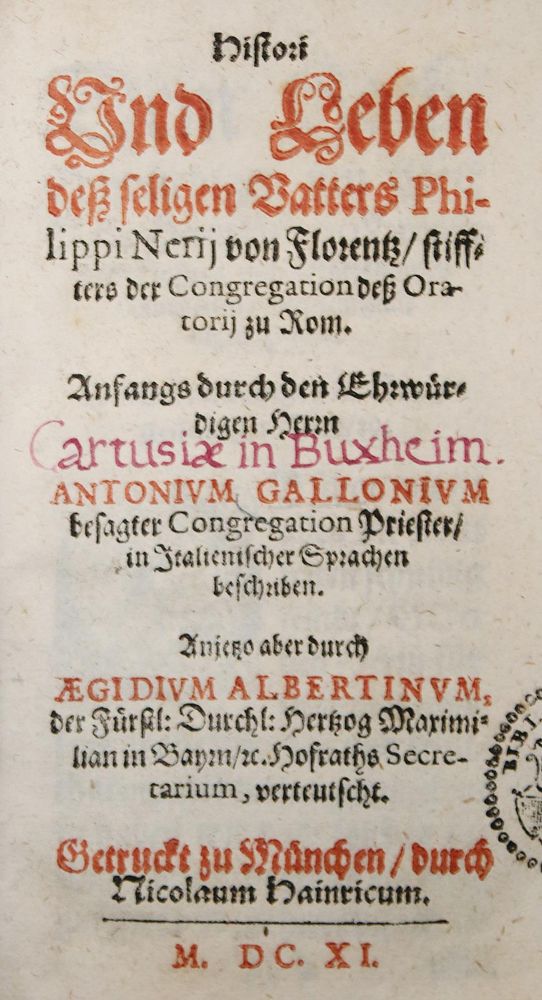 Histori
Und Leben
deß seligen Vatters Phi-
lippi Nerij von Florentz/ stiff-
ters der Congregation deß Ora-
torij zu Rom.
Anfangs durch den Ehrwür-
digen Herrn
Cartusiæ in Buxheim.
ANTONIVM GALLONIVM
besagter Congregation Priester/
in Italienischer Sprachen
beschriben.
Anjetzo aber durch
ÆGIDIVM ALBERTINVM,
der Fürstl: Durchl: Hertzog Maximi-
lian in Bayrn/ꝛc. Hofraths Secre-
tarium, verteutscht.
Getruckt zu München/ durch
Nicolaum Hainricum.
M. DC. XI.
BIBL